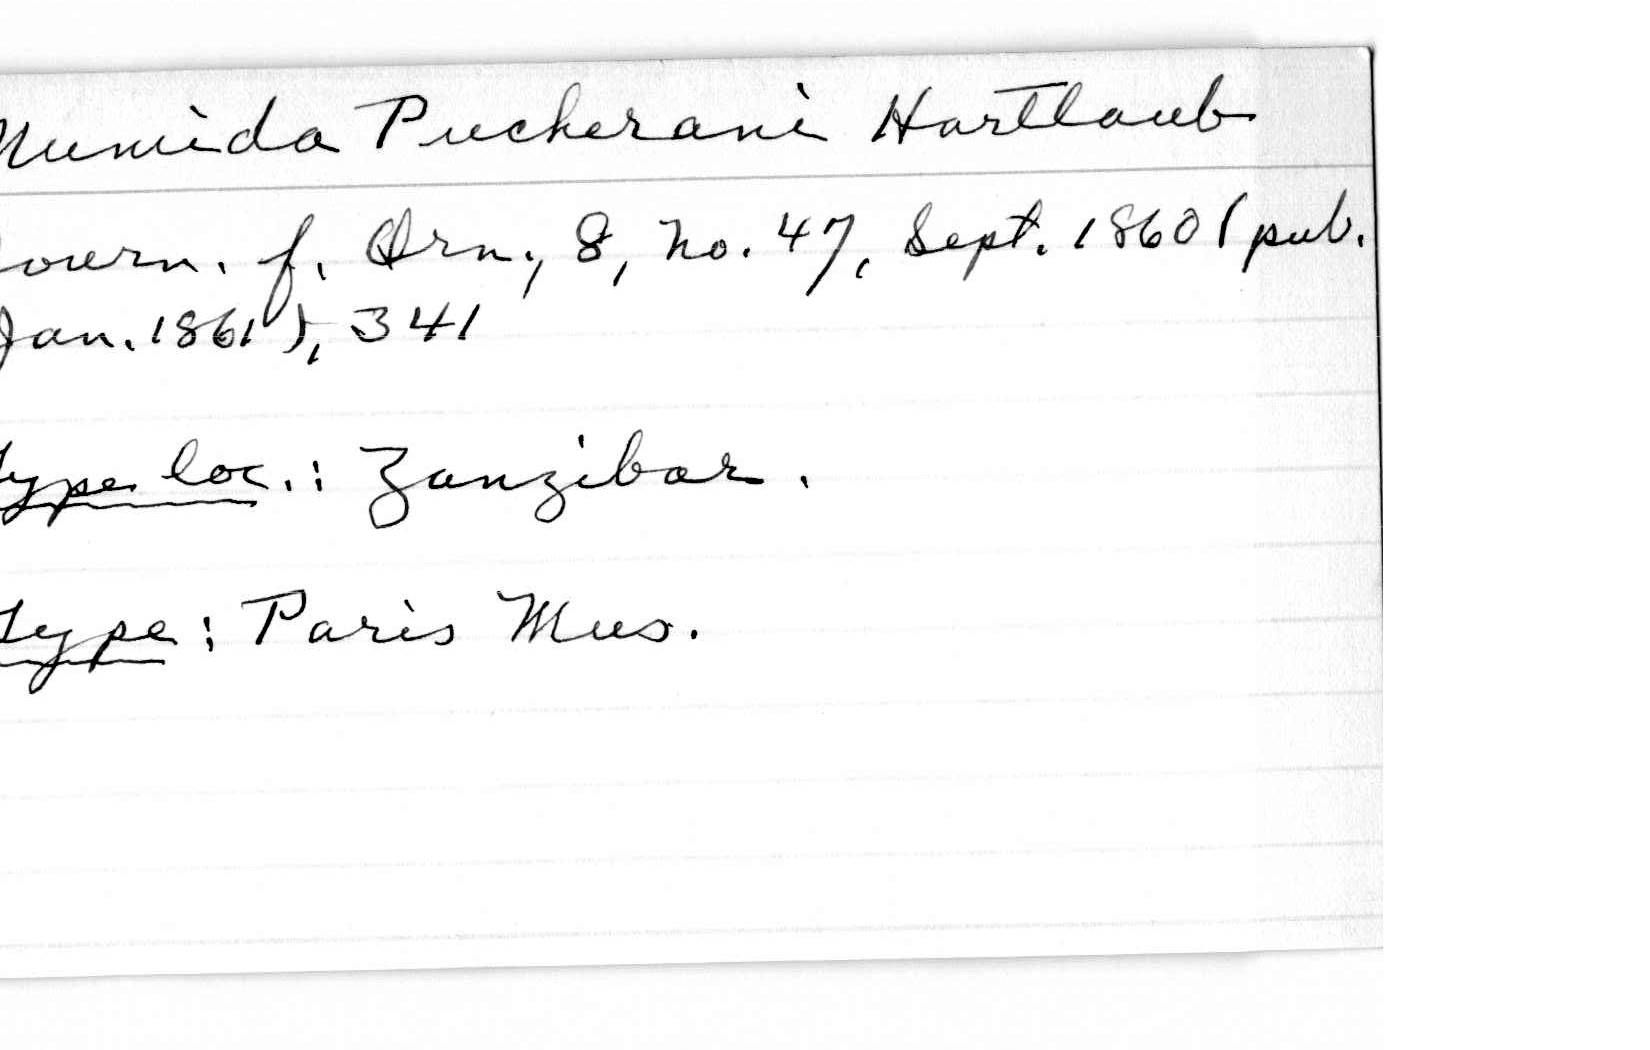 Numida Pucherani Hartlaub
Journ. f. Orn., 8, no. 47, Sept. 1860 (pub.
Jan. 1861), 341
Type loc.: Zanzibar.
Type: Paris Mus.